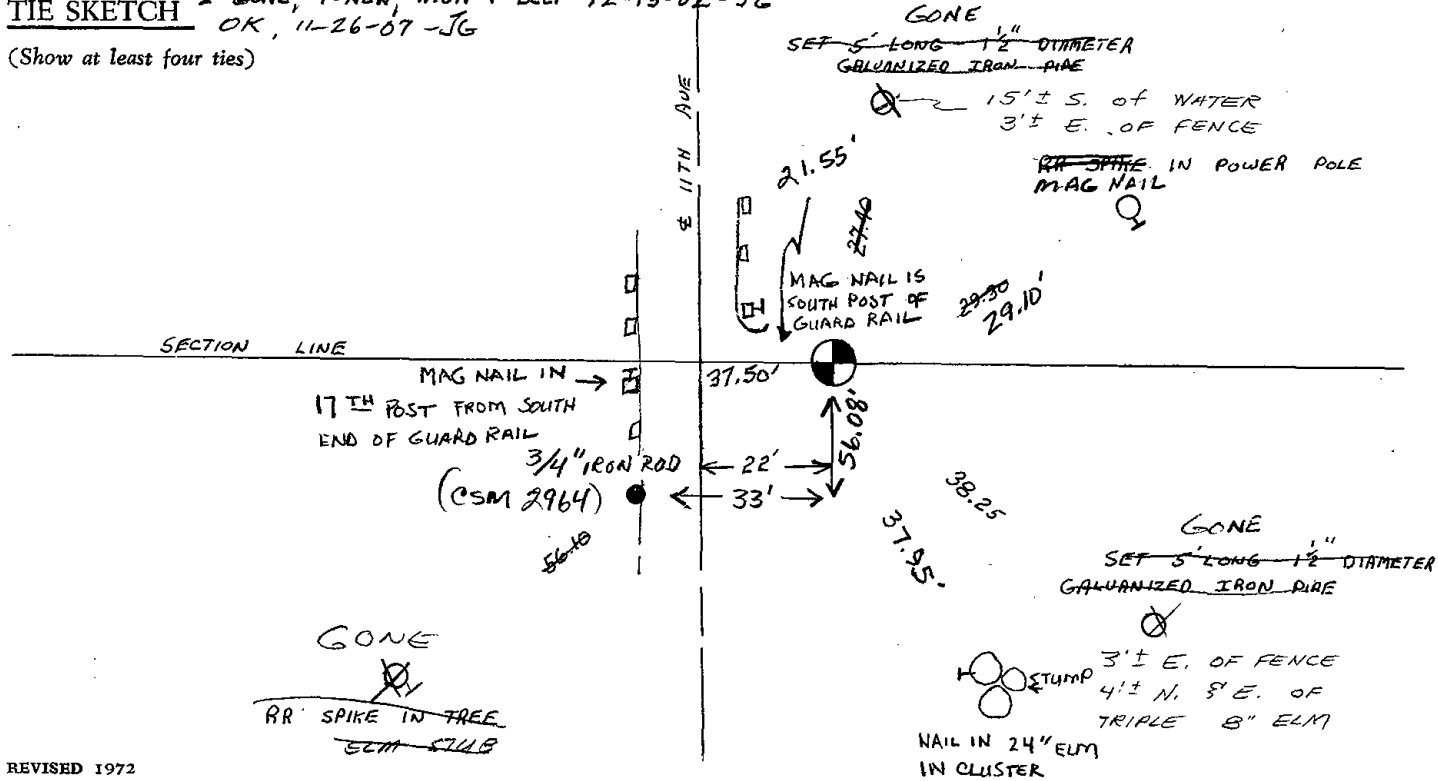 TIE SKETCH
OK, 11-26-07 -JG
(Show at least four ties)
GONE
SET 5' LONG 1½" DIAMETER
GALVANIZED IRON PIPE
15'± S. of WATER
3'± E. OF FENCE
RR SPIKE IN POWER POLE
MAG NAIL
℄ 11TH AVE
21.55'
27.40
MAG NAIL IS
SOUTH POST OF
GUARD RAIL
29.30
29.10'
SECTION LINE
MAG NAIL IN
17TH POST FROM SOUTH
END OF GUARD RAIL
37.50'
56.08'
3/4" IRON ROD
22'
(CSM 2964)
33'
56.10
38.25
37.95'
GONE
SET 5' LONG 1½" DIAMETER
GALVANIZED IRON PIPE
3'± E. OF FENCE
4'± N. & E. OF
TRIPLE 8" ELM
STUMP
NAIL IN 24" ELM
IN CLUSTER
GONE
RR SPIKE IN TREE
ELM STUB
REVISED 1972